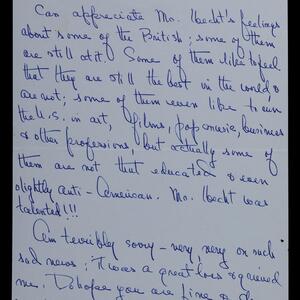 Can appreciate Mr. Hecht's feelings
about some of the British; some of them
are still at it. Some of them like to feel
that they are still the best in the world &
are not; some of them even like to run
the U.S. in art, films, pop music, business
& other professions, but actually some of
them are not that educated & even
slightly anti-American. Mr. Hecht was
talented!!!
Am terribly sorry - very, very on such
sad news; It was a great loss & grieved
me. Do hope you are fine & do